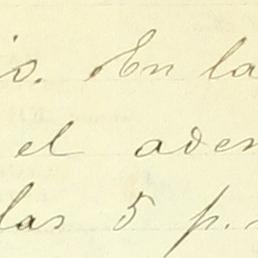 is. En la
el aden
las 5 p.